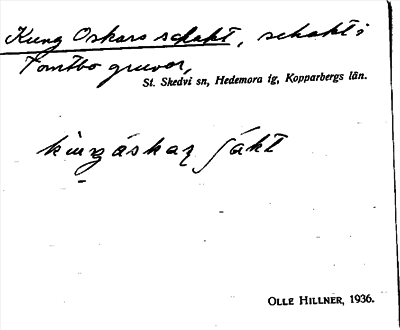 Kung Oskars schakt, schakt i
Tomtbo gruvor,
St. Skedvi sn, Hedemora tg, Kopparbergs län.
OLLE HILLNER, 1936.